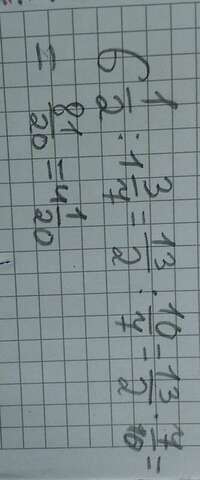 6 1/2 : 1 3/7 = 13/2 : 10/7 = 13/2 · 7/10 =
= 81/20 = 4 1/20